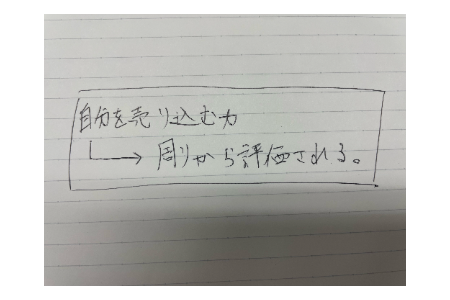 自分を売り込む力
→ 周りから評価される。